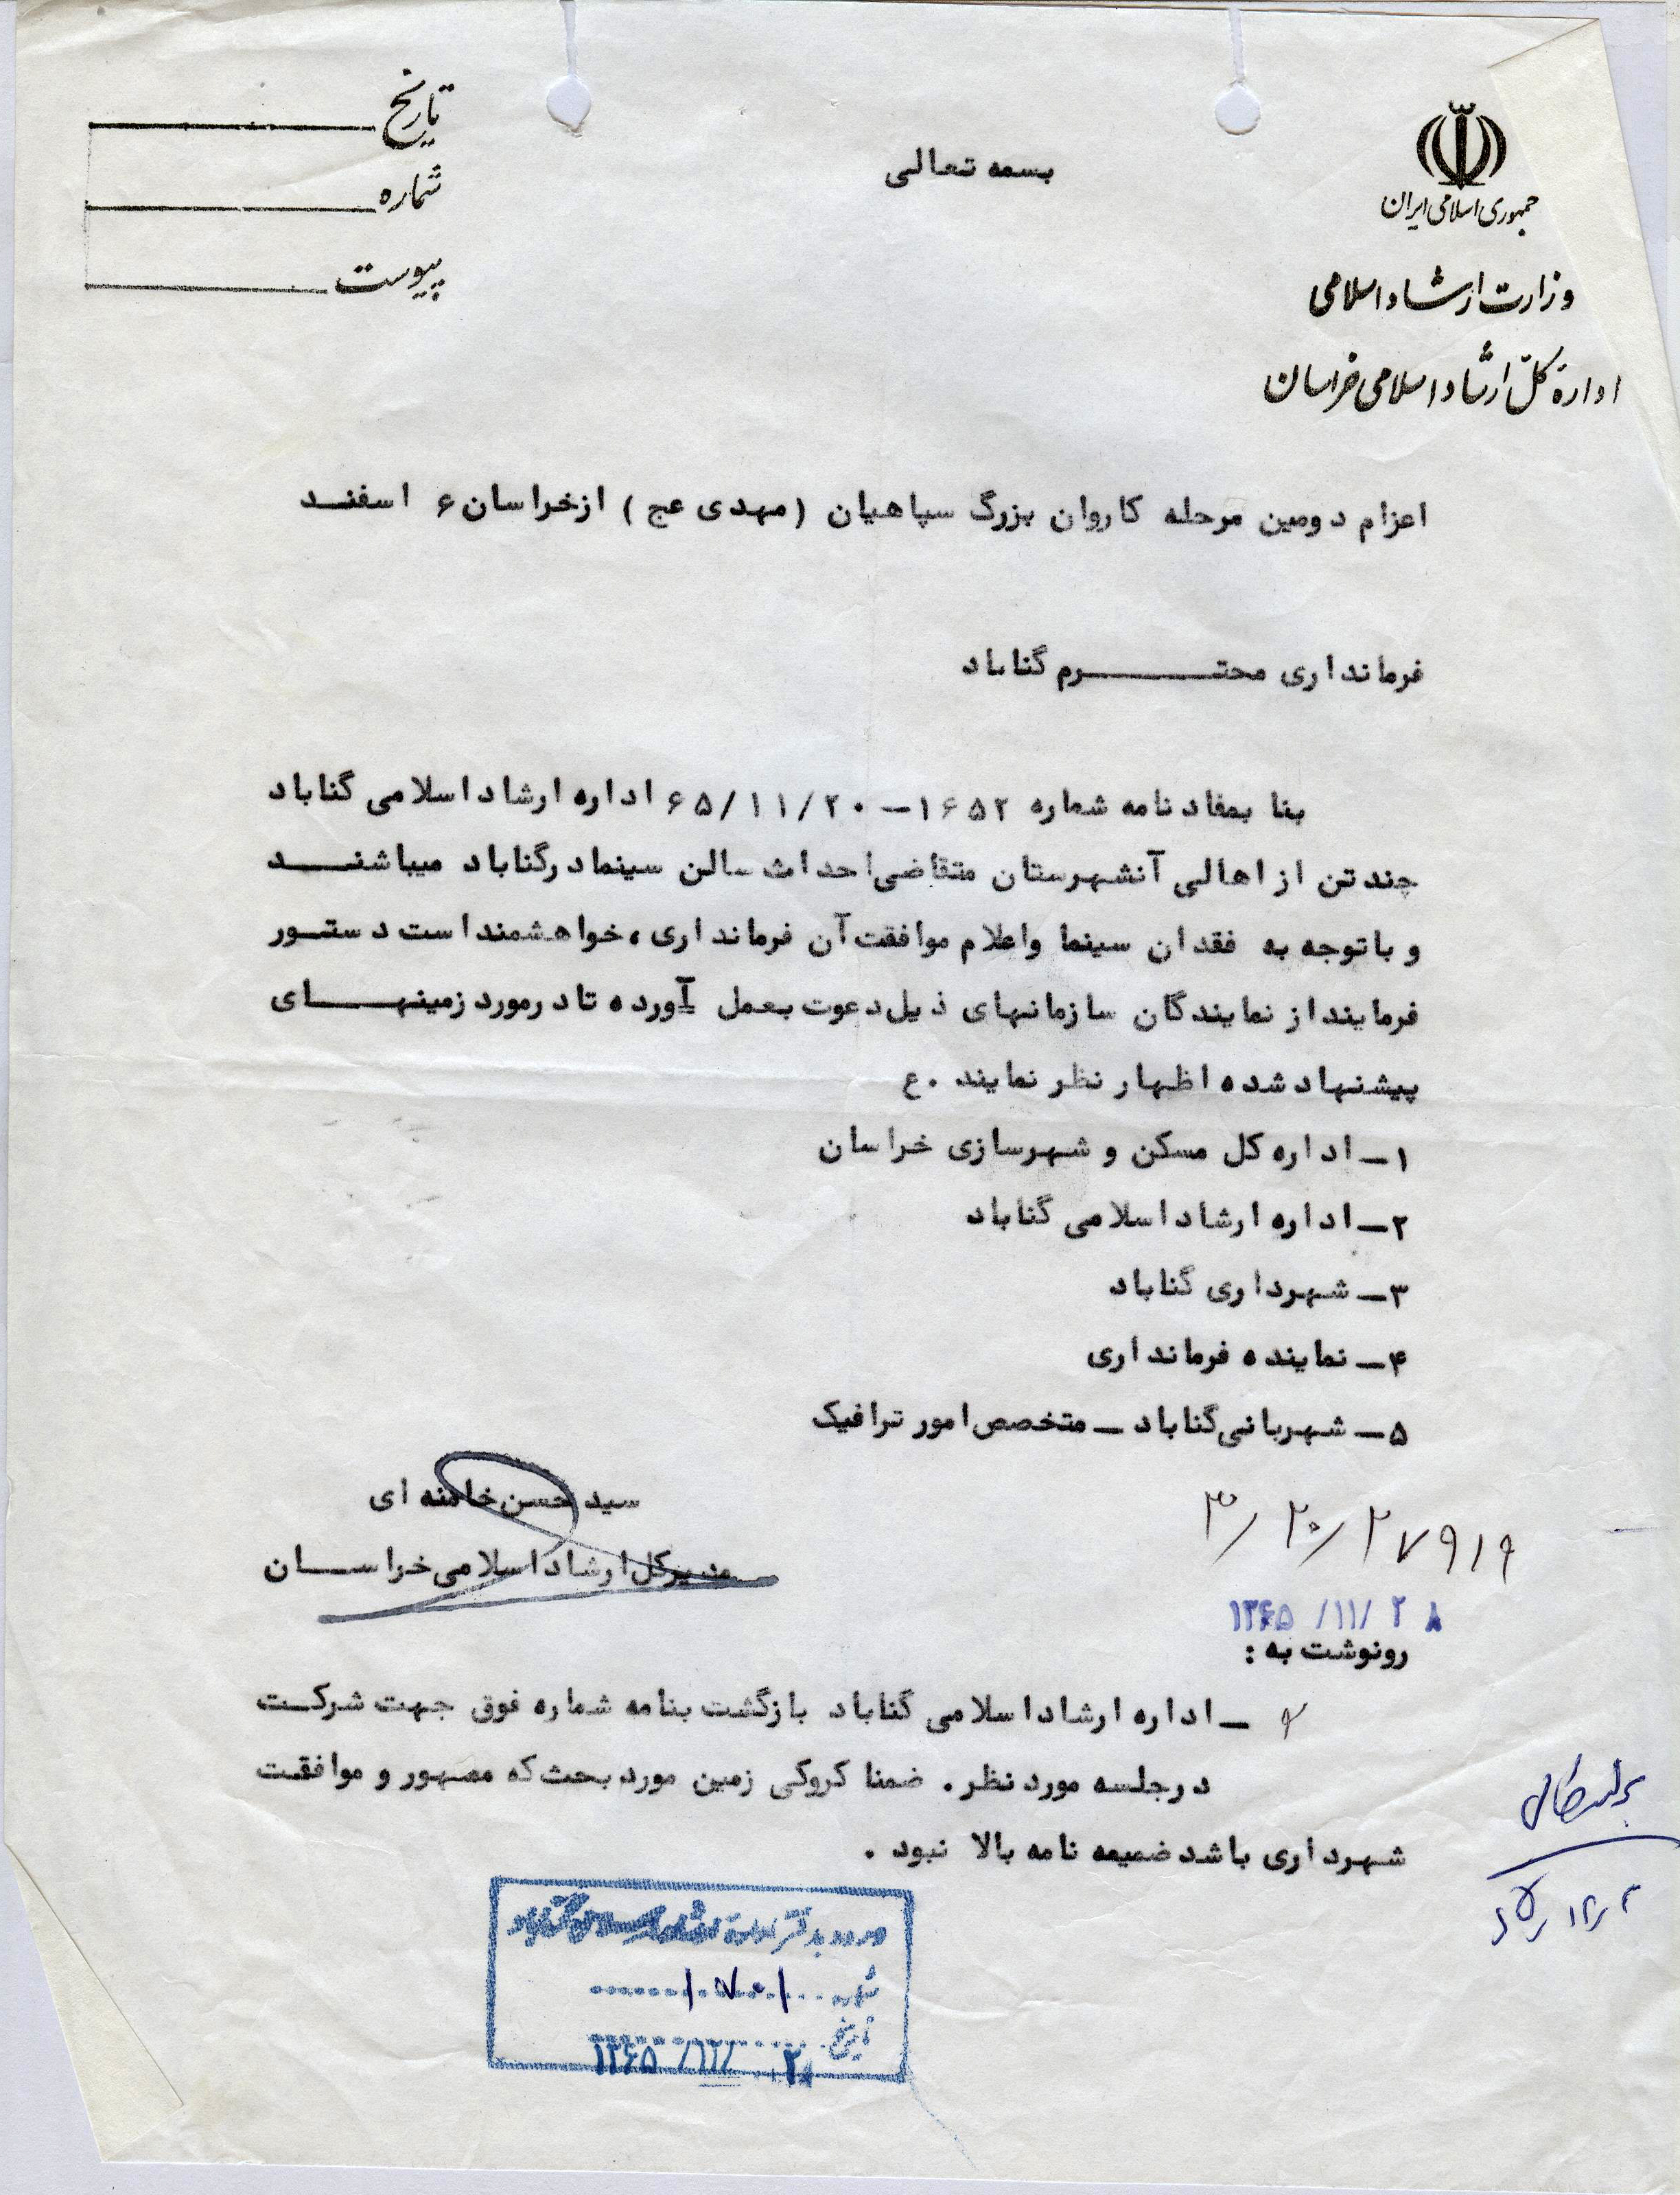 بسمه تعالی
جمهوری اسلامی ایران
وزارت ارشاد اسلامی
ادارهٔ کلّ ارشاد اسلامی خراسان
تاریخ
شماره
پیوست
اعزام دومین مرحله کاروان بزرگ سپاهیان (مهدی عج) ازخراسان ۶ اسفند
فرمانداری محترم گناباد
بنا بمفاد نامه شماره ۱۶۵۲ - ۶۵/۱۱/۲۰ اداره ارشاد اسلامی گناباد
چند تن از اهالی آنشهرستان متقاضی احداث سالن سینما درگناباد میباشند
و باتوجه به فقدان سینما واعلام موافقت آن فرمانداری، خواهشمند است دستور
فرمایند از نمایندگان سازمانهای ذیل دعوت بعمل آورده تا درمورد زمینهای
پیشنهاد شده اظهار نظر نمایند .ع
۱- اداره کل مسکن و شهرسازی خراسان
۲- اداره ارشاد اسلامی گناباد
۳- شهرداری گناباد
۴- نماینده فرمانداری
۵- شهربانی گناباد - متخصص امور ترافیک
سید حسن خامنه ای
مدیرکل ارشاد اسلامی خراسان
۳/۲۰/۲۷۹۱۹
۱۳۶۵ /۱۱/ ۲۸
رونوشت به :
- اداره ارشاد اسلامی گناباد بازگشت بنامه شماره فوق جهت شرکت
درجلسه مورد نظر. ضمنا کروکی زمین مورد بحث که ممهور و موافقت
شهرداری باشد ضمیمه نامه بالا نبود .
ورود بدفتر اداره ارشاد اسلامی گناباد
شماره ۱۷۰۱
تاریخ ۱۳۶۵ /۱۲/ ۲